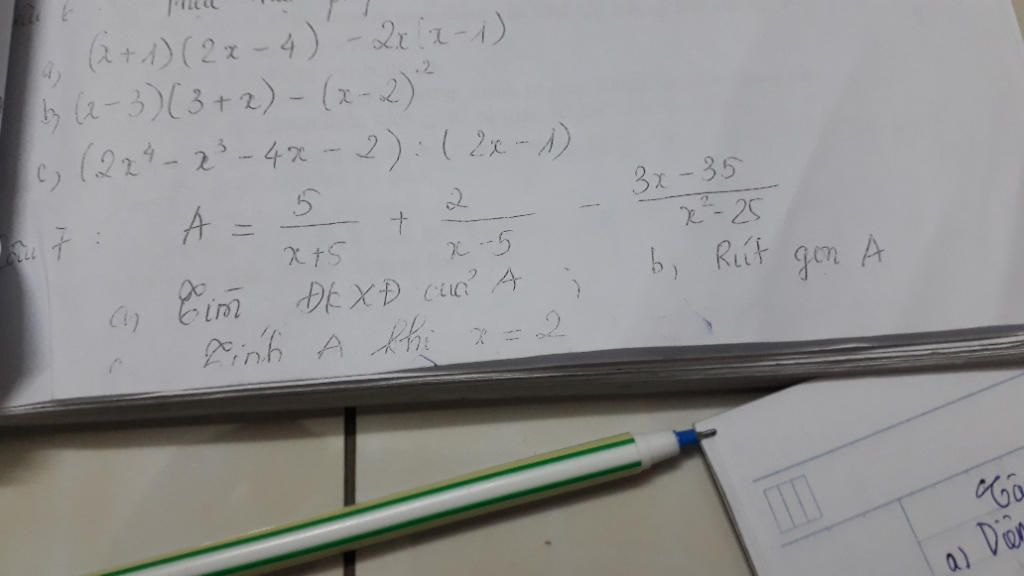 a, (x+1)(2x-4) - 2x(x-1)
b, (x-3)(3+x) - (x-2)²
c, (2x⁴ - x³ - 4x - 2) : (2x-1)
Câu 7 : A = 5/(x+5) + 2/(x-5) - (3x-35)/(x²-25)
a, Tìm ĐKXĐ của A ; b, Rút gọn A
Tính A khi x = 2
a) Diện